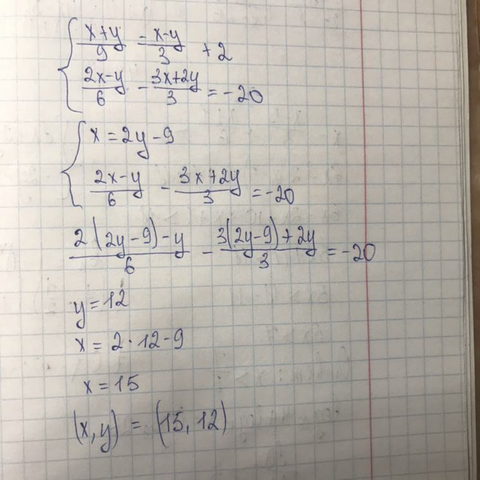 { (x+y)/9 = (x-y)/3 + 2
(2x-y)/6 - (3x+2y)/3 = -20
{ x = 2y-9
(2x-y)/6 - (3x+2y)/3 = -20
(2(2y-9)-y)/6 - (3(2y-9)+2y)/3 = -20
y = 12
x = 2·12-9
x = 15
(x,y) = (15, 12)